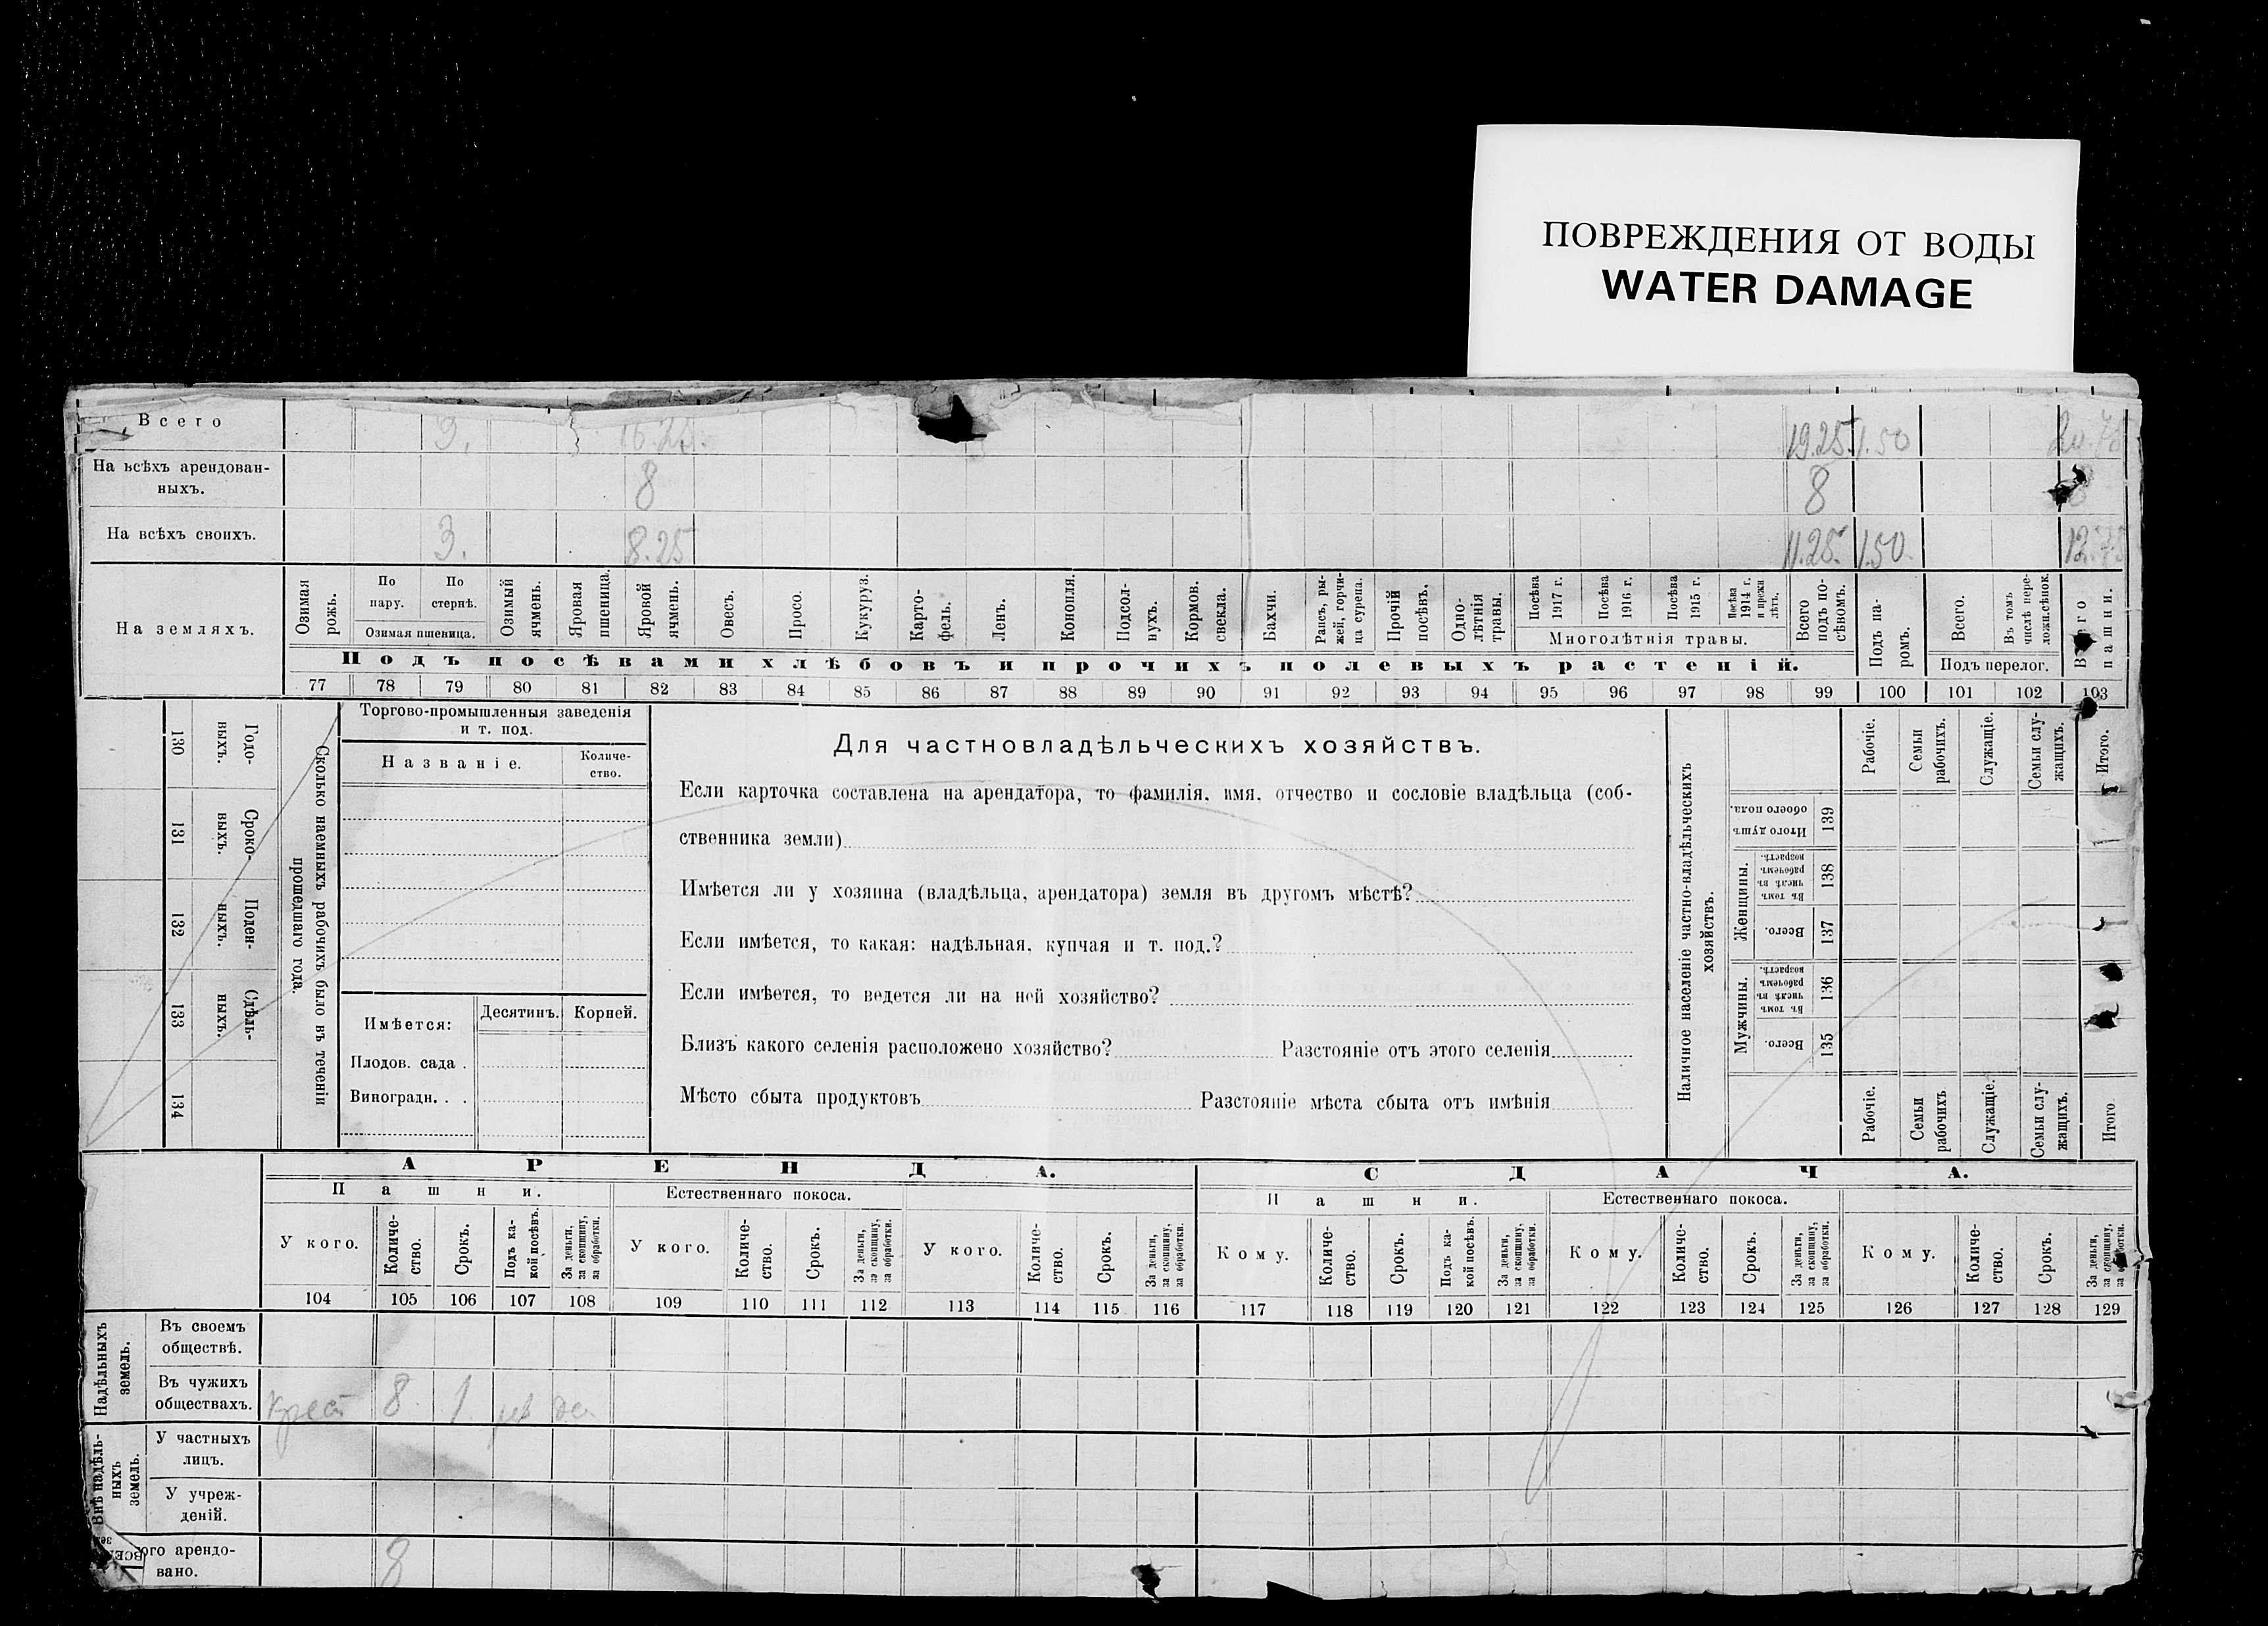 ПОВРЕЖДЕНИЯ ОТ ВОДЫ
WATER DAMAGE
Всего 3. 16.25. 19.25. 1.50
На всѣхъ арендован-
ныхъ. 8 8
На всѣхъ своихъ. 3. 8.25 11.25. 1.50 12.75
На земляхъ.
Озимая рожь.
По пару.
По стернѣ.
Озимая пшеница.
Озимый ячмень.
Яровая пшеница.
Яровой ячмень.
Овесъ.
Просо.
Кукуруз.
Карто-
фель.
Ленъ.
Конопля.
Подсол-
нухъ.
Кормов.
свекла.
Бахчи.
Рапсъ, ры-
жей, горчи-
ца сурепа.
Прочій
посѣвъ.
Одно-
лѣтнія
травы.
Посѣва 1917 г.
Посѣва 1916 г.
Посѣва 1915 г.
Посѣва 1914 г. и прежн лѣтъ.
Многолѣтнія травы.
Всего
подъ по-
сѣвомъ.
Подъ па-
ромъ.
Всего.
Въ томъ
числѣ пере-
ложн.сѣнок.
Подъ перелог.
пашни.
Подъ посѣвами хлѣбовъ и прочихъ полевыхъ растеній.
77 78 79 80 81 82 83 84 85 86 87 88 89 90 91 92 93 94 95 96 97 98 99 100 101 102 103
Годо-
выхъ.
130
Сроко-
выхъ.
131
Поден-
ныхъ.
132
Сдѣль-
ныхъ.
133
134
Сколько наемныхъ рабочихъ было въ теченіи
прошедшаго года.
Торгово-промышленныя заведенія
и т. под.
Названіе.
Количе-
ство.
Имѣется:
Десятинъ. Корней.
Плодов. сада .
Виноградн. . .
Для частновладѣльческихъ хозяйствъ.
Если карточка составлена на арендатора, то фамилія, имя, отчество и сословіе владѣльца (соб-
ственника земли)
Имѣется ли у хозяина (владѣльца, арендатора) земля въ другомъ мѣстѣ?
Если имѣется, то какая: надѣльная, купчая и т. под.?
Если имѣется, то ведется ли на ней хозяйство?
Близъ какого селенія расположено хозяйство? Разстояніе отъ этого селенія
Мѣсто сбыта продуктовъ Разстояніе мѣста сбыта отъ имѣнія
Наличное населеніе частно-владѣльческихъ
хозяйствъ.
Рабочіе.
Семьи
рабочихъ.
Служащіе.
Семьи слу-
жащихъ.
Итого.
Итого душъ
обоего пола.
139
Женщины.
Въ томъ
числѣ въ
рабочемъ
возрастѣ.
138
Всего.
137
Мужчины.
Въ томъ
числѣ въ
рабочемъ
возрастѣ.
136
Всего.
135
Рабочіе.
Семьи
рабочихъ
Служащіе.
Семьи слу-
жащихъ.
Итого.
АРЕНДА. СДАЧА.
Пашни. Естественнаго покоса. Пашни. Естественнаго покоса.
У кого.
Количе-
ство.
Срокъ.
Подъ ка-
кой посѣвъ.
За деньги,
за скопщину,
за обработки.
У кого.
Количе-
ство.
Срокъ.
За деньги,
за скопщину,
за обработки.
У кого.
Количе-
ство.
Срокъ.
За деньги,
за скопщину,
за обработки.
Кому.
Количе-
ство.
Срокъ.
Подъ ка-
кой посѣвъ.
За деньги,
за скопщину,
за обработки.
Кому.
Количе-
ство.
Срокъ.
За деньги,
за скопщину,
за обработки.
Кому.
Количе-
ство.
Срокъ.
За деньги,
за скопщину,
104 105 106 107 108 109 110 111 112 113 114 115 116 117 118 119 120 121 122 123 124 125 126 127 128 129
Надѣльныхъ
земель.
Въ своемъ
обществѣ.
Въ чужихъ
обществахъ. 8 1
Внѣ надѣль-
ныхъ
земель.
У частныхъ
лицъ.
У учреж-
деній.
арендо-
вано. 8